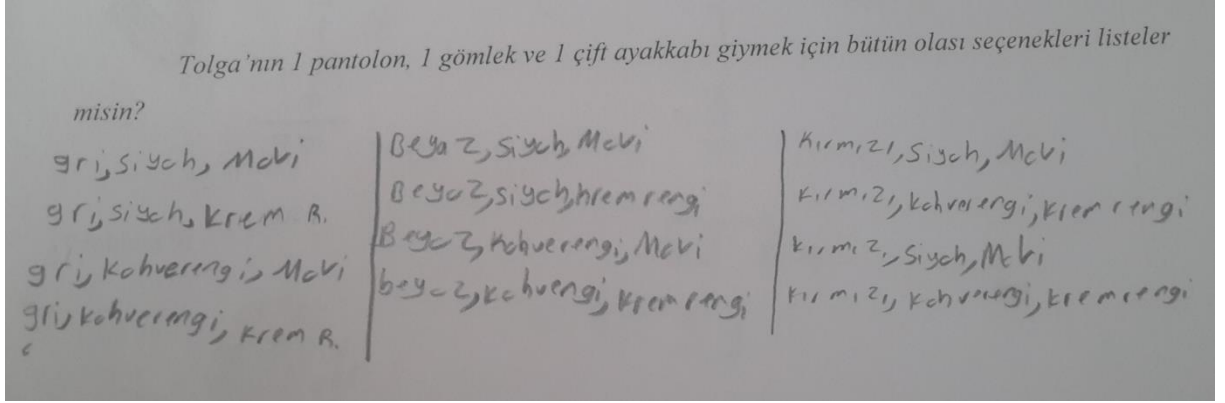 Tolga'nın 1 pantolon, 1 gömlek ve 1 çift ayakkabı giymek için bütün olası seçenekleri listeler
misin?
gri, siyah, Mavi
gri, siyah, krem R.
gri, kahverengi, Mavi
gri, kahverengi, krem R.
Beyaz, siyah, Mavi
Beyaz, siyah, krem rengi
Beyaz, Kahverengi, Mavi
beyaz, kahvengi, krem rengi
Kırmızı, Siyah, Mavi
kırmızı, kahverengi, krem rengi
kırmızı, Siyah, Mavi
kırmızı, kahverengi, krem rengi